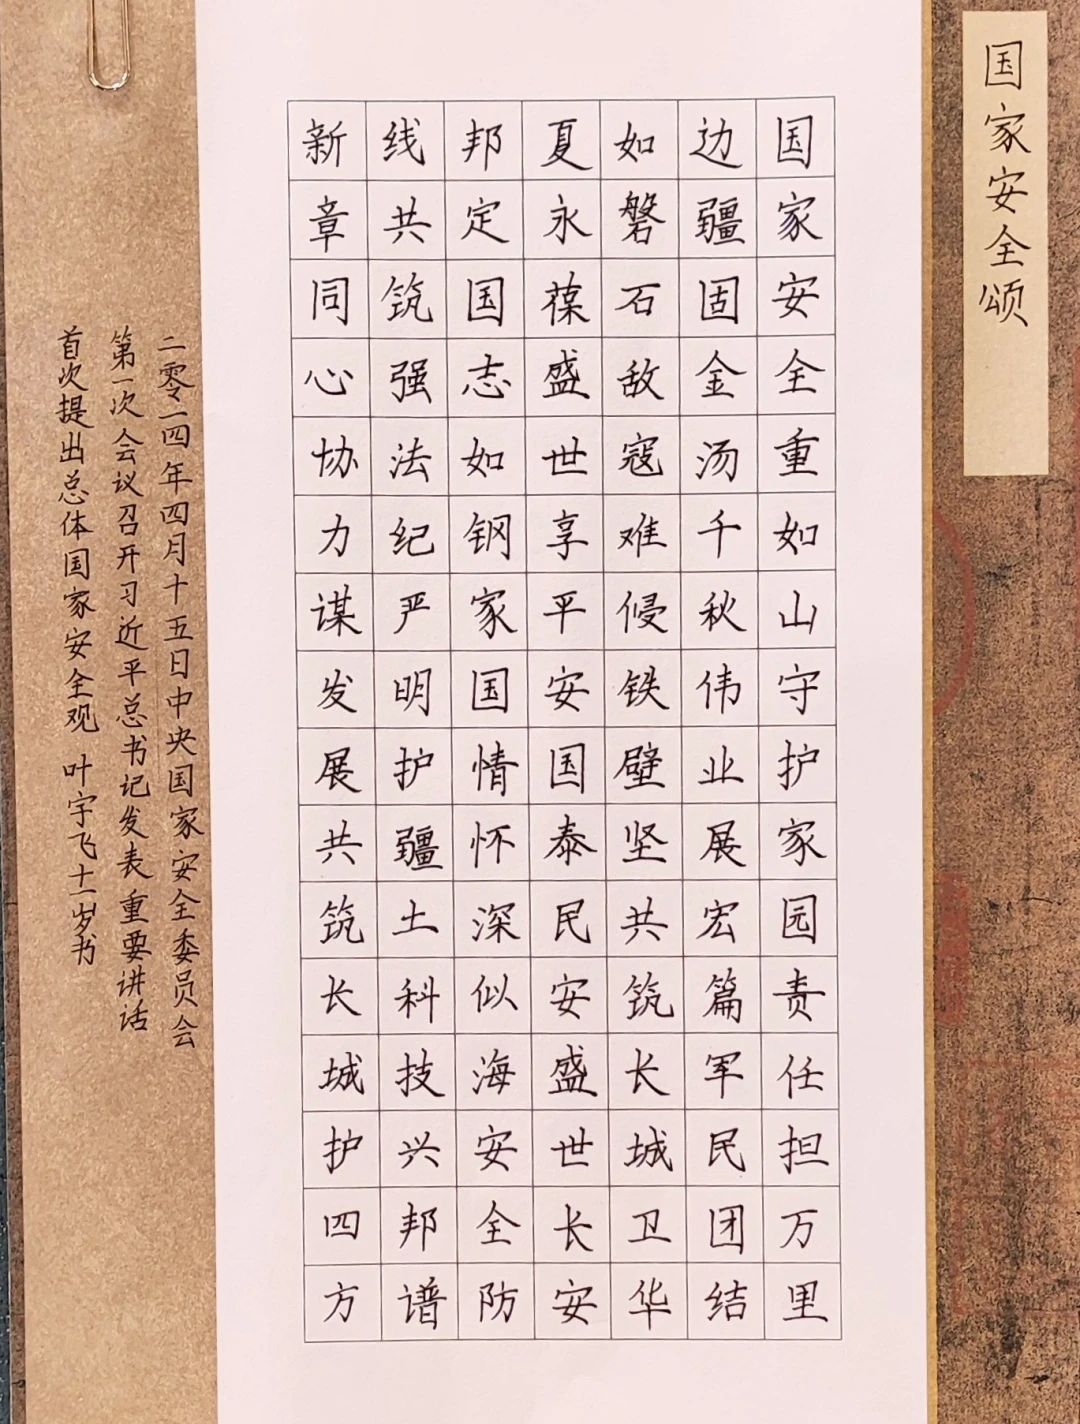 国家安全颂
国家安全重如山守护家园责任担万里
边疆固金汤千秋伟业展宏篇军民团结
如磐石敌寇难侵铁壁坚共筑长城卫华
夏永葆盛世享平安国泰民安盛世长安
邦定国志如钢家国情怀深似海安全防
线共筑强法纪严明护疆土科技兴邦谱
新章同心协力谋发展共筑长城护四方
二零一四年四月十五日中央国家安全委员会
第一次会议召开习近平总书记发表重要讲话
首次提出总体国家安全观 叶宇飞十一岁书